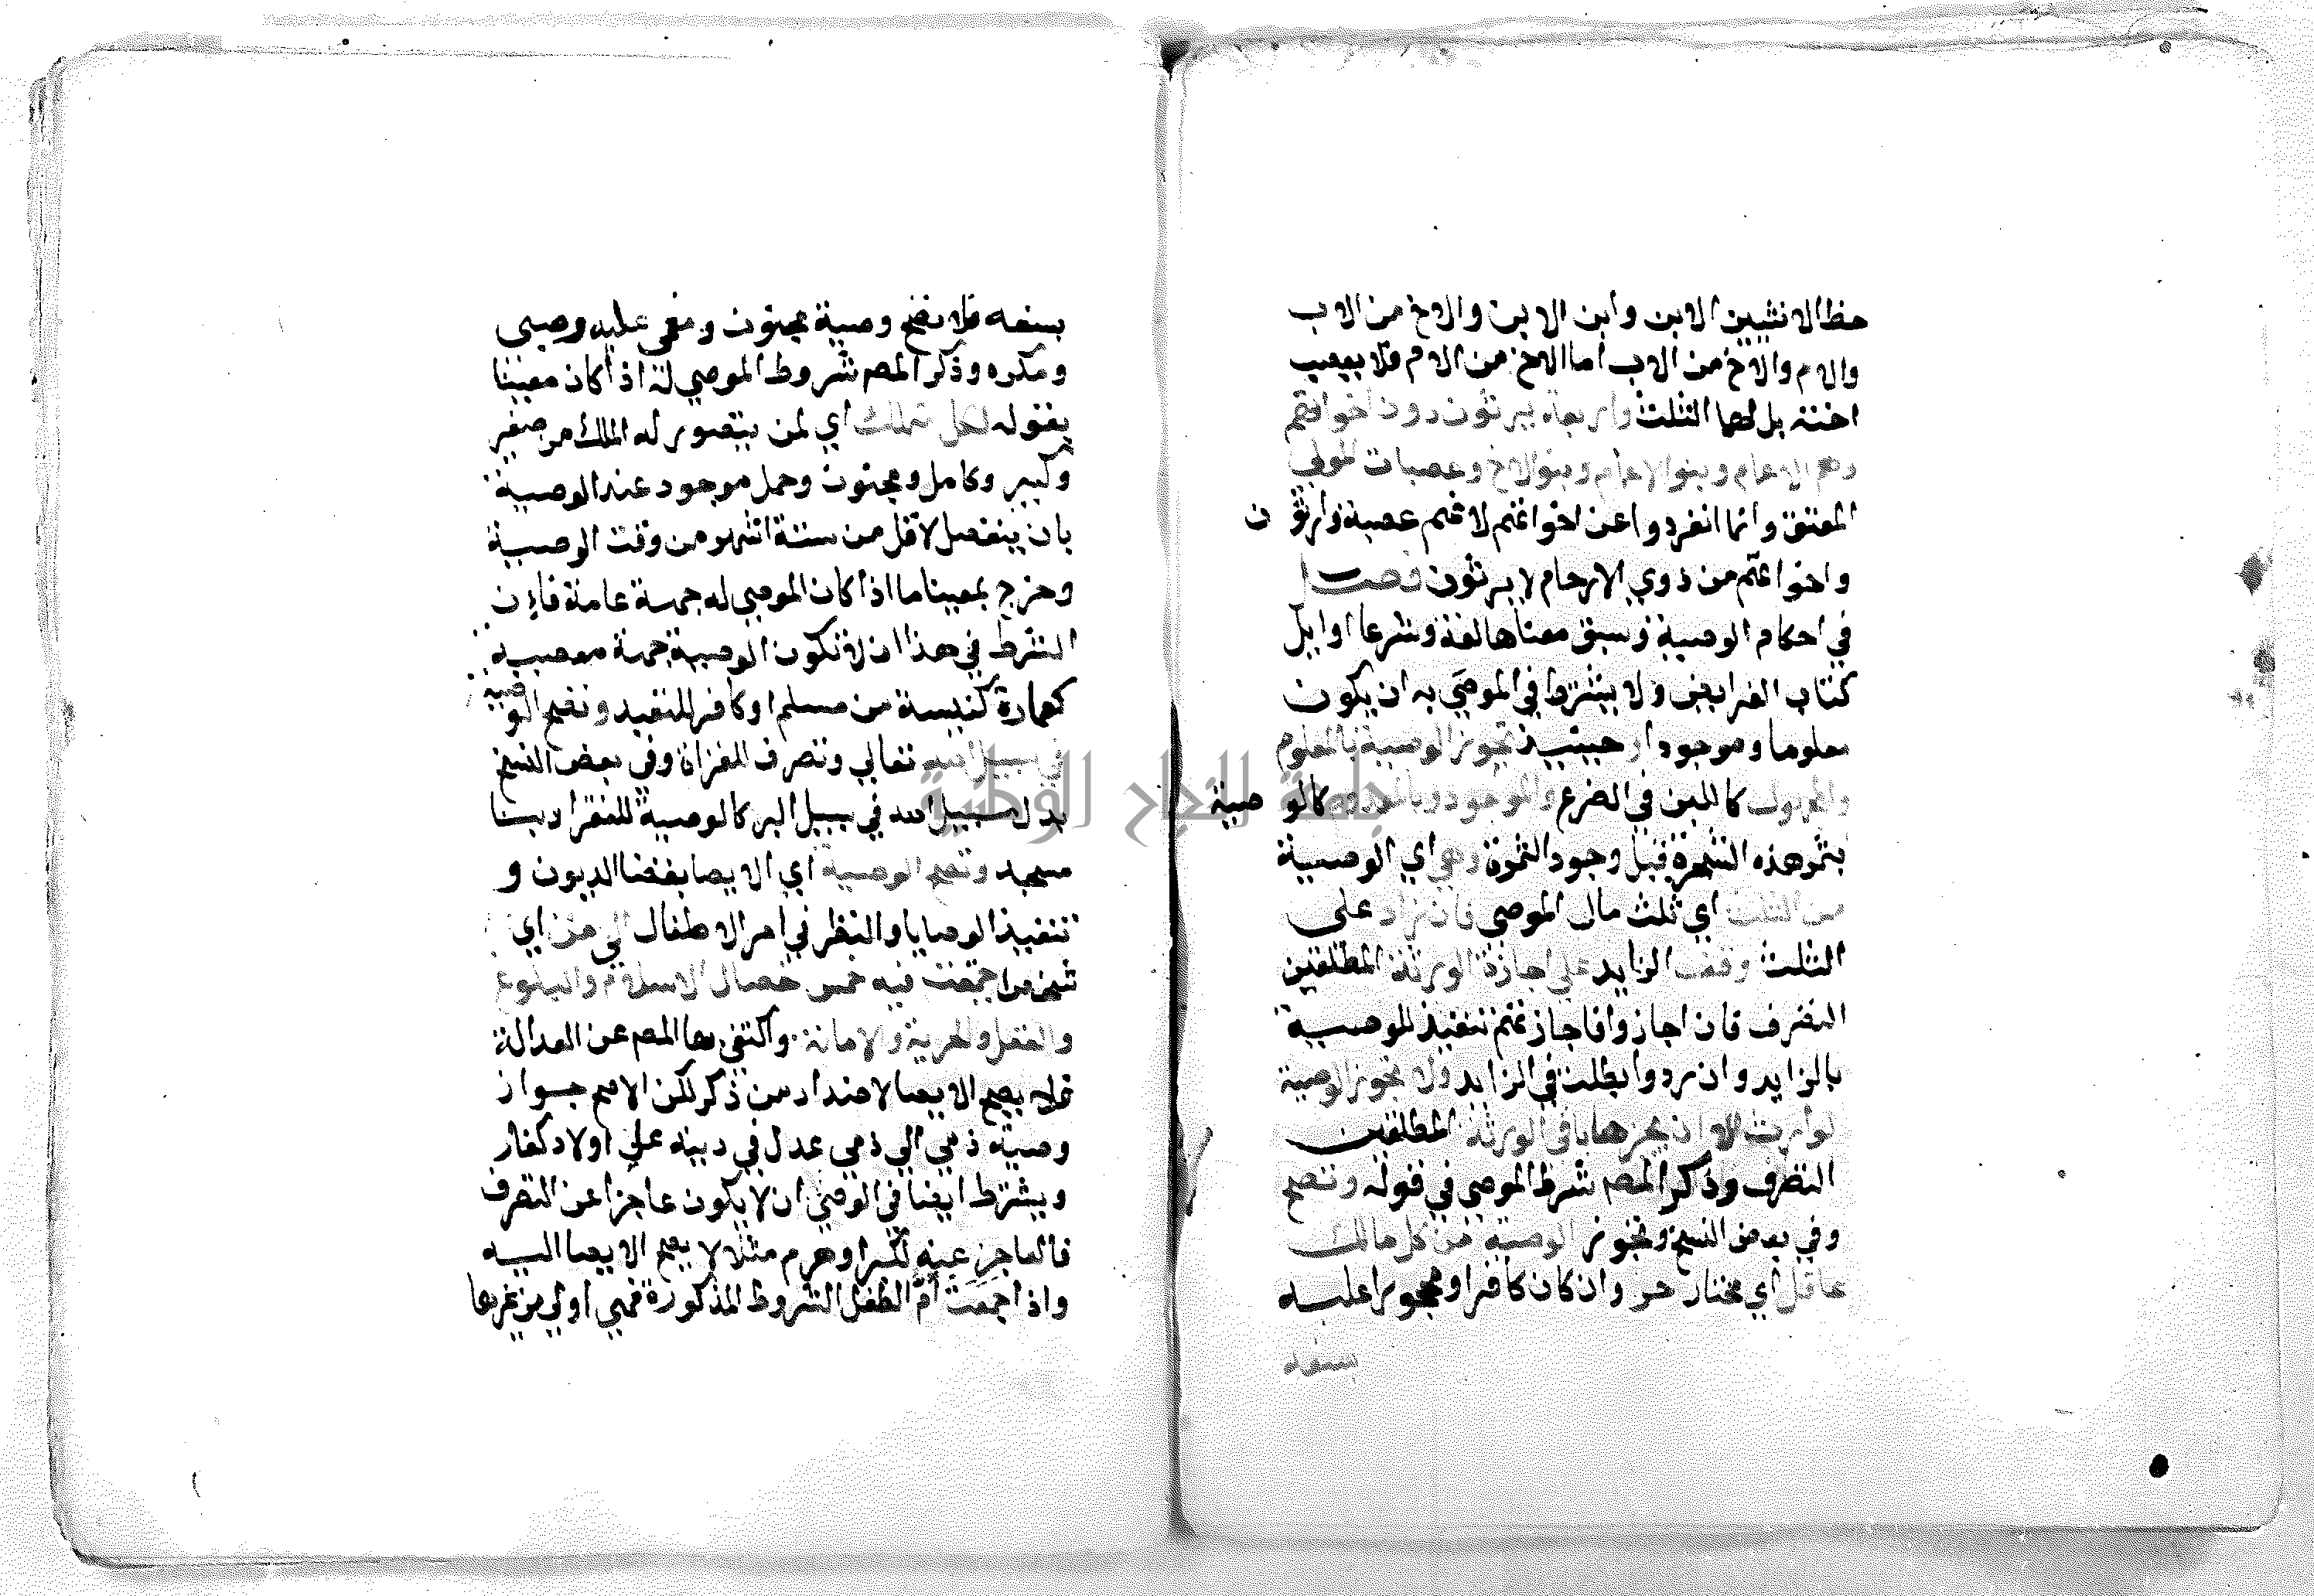 حظ الانثيين الابن وابن الابن والاخ من الاب
والام والاخ من الاب اما الاخ من الام فلا يعصب
اخته بل لهما الثلث واربعة يرثون دون اخواتهم
وهم الاعمام وبنوا الاعمام وبنوا الاخ وعصبات المولي
المعتق وانما انفردوا عن اخواتهم لانهم عصبة وارثون
واخواتهم من ذوي الارحام لا يرثون فصل
في احكام الوصية وسبق معناها لغة وشرعا اوايل
كتاب الفرايض ولا يشترط في الموصي به ان يكون
معلوما وموجودا وحينيذ تجوز الوصية بالمعلوم
والمجهول كاللبن في الضرع والموجود وبالمعدوم كالوصية
بثمر هذه الشجرة قبل وجود الثمرة وهي اي الوصية
من الثلث اي ثلث مال الموصي فان زاد على
الثلث وقف الزايد علي اجازة الورثة المطلقين
التصرف فان اجازوا فاجازتهم تنفيذ للوصية
بالزايد وان ردوا بطلت في الزايد ولا تجوز الوصية
لوارث الا ان يجيزها باقي الورثة المطلقين
التصرف وذكر المصم شرط الموصي في قوله وتصح
وفي بعض النسخ وتجوز الوصية من كل مالك
عاقل اي مختار حر وان كان كافرا او محجورا عليه
بسفه
بسفه فلا تصح وصية مجنون ومغمى عليه وصبي
ومكره وذكر المصم شروط الموصي له اذا كان معينا
بقوله لكل متملك اي لمن يتصور له الملك من صغير
وكبير وكامل ومجنون وحمل موجود عند الوصية
بان ينفصل لاقل من ستة اشهر من وقت الوصية
وخرج بمعينا ما اذا كان الموصي له جهة عامة فان
الشرط في هذا ان لا تكون الوصية جهة معصية
كعمارة كنيسة من مسلم او كافر للتعبد وتصح الوصية
في سبيل الله تعالي وتصرف للغزاة وفي بعض النسخ
بدل سبيل الله في سبيل البر كالوصية للفقرا و بنا
مسجد وتصح الوصية اي الايصا بقضا الديون و
تنفيذ الوصايا والنظر في امر الاطفال الى من اي
شخص اجتمعت فيه خمس خصال الاسلام والبلوغ
والعقل والحرية والامانة واكتفي بها المصم عن العدالة
فلا يصح الايصا لاضداد من ذكر لكن الاصح جواز
وصية ذمي الي ذمي عدل في دينه علي اولاد كفار
ويشترط ايضا في الوصي ان لا يكون عاجزا عن التصرف
فالعاجز عنه لكبر او هرم مثلا لا يصح الايصا اليه
واذا جمعت ام الطفل الشروط المذكورة فهي اولي من غيرها